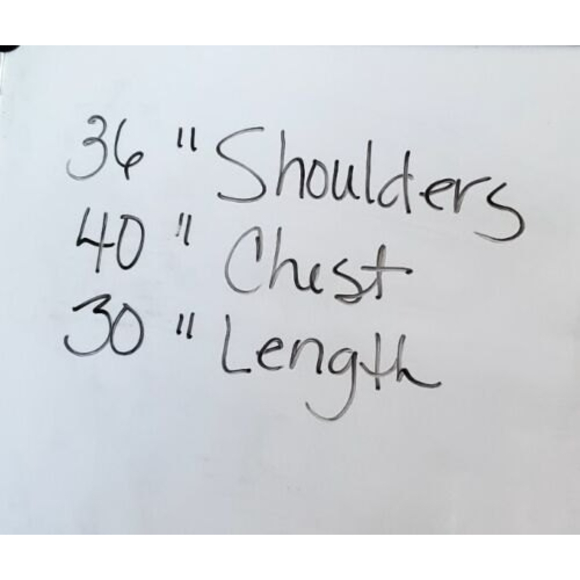 36 " Shoulders
40 " Chest
30 " Length